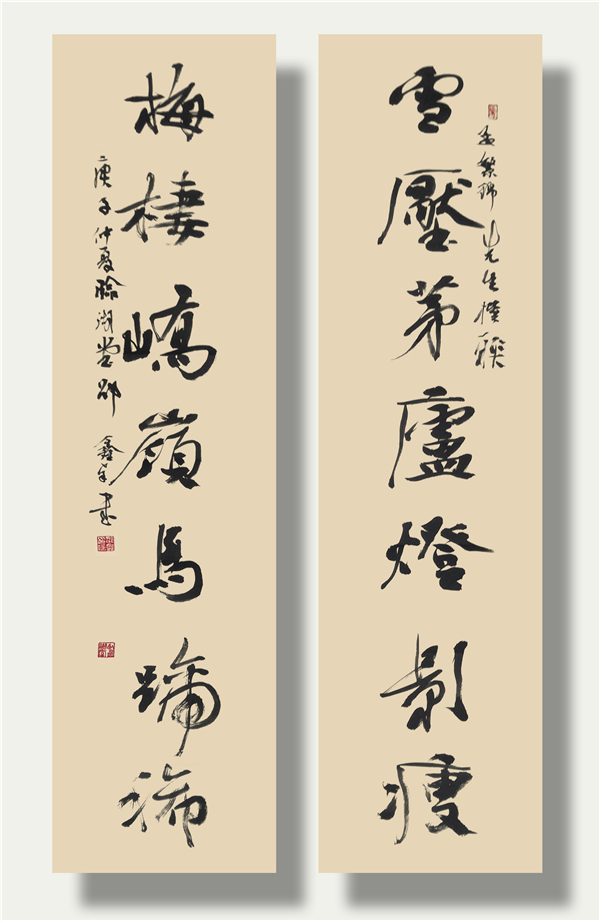 孟繁錦先生撰聯
雪壓茅廬燈影瘦
梅棲嶠嶺馬蹄稀
庚子仲夏臨湖堂鄒鑫年書